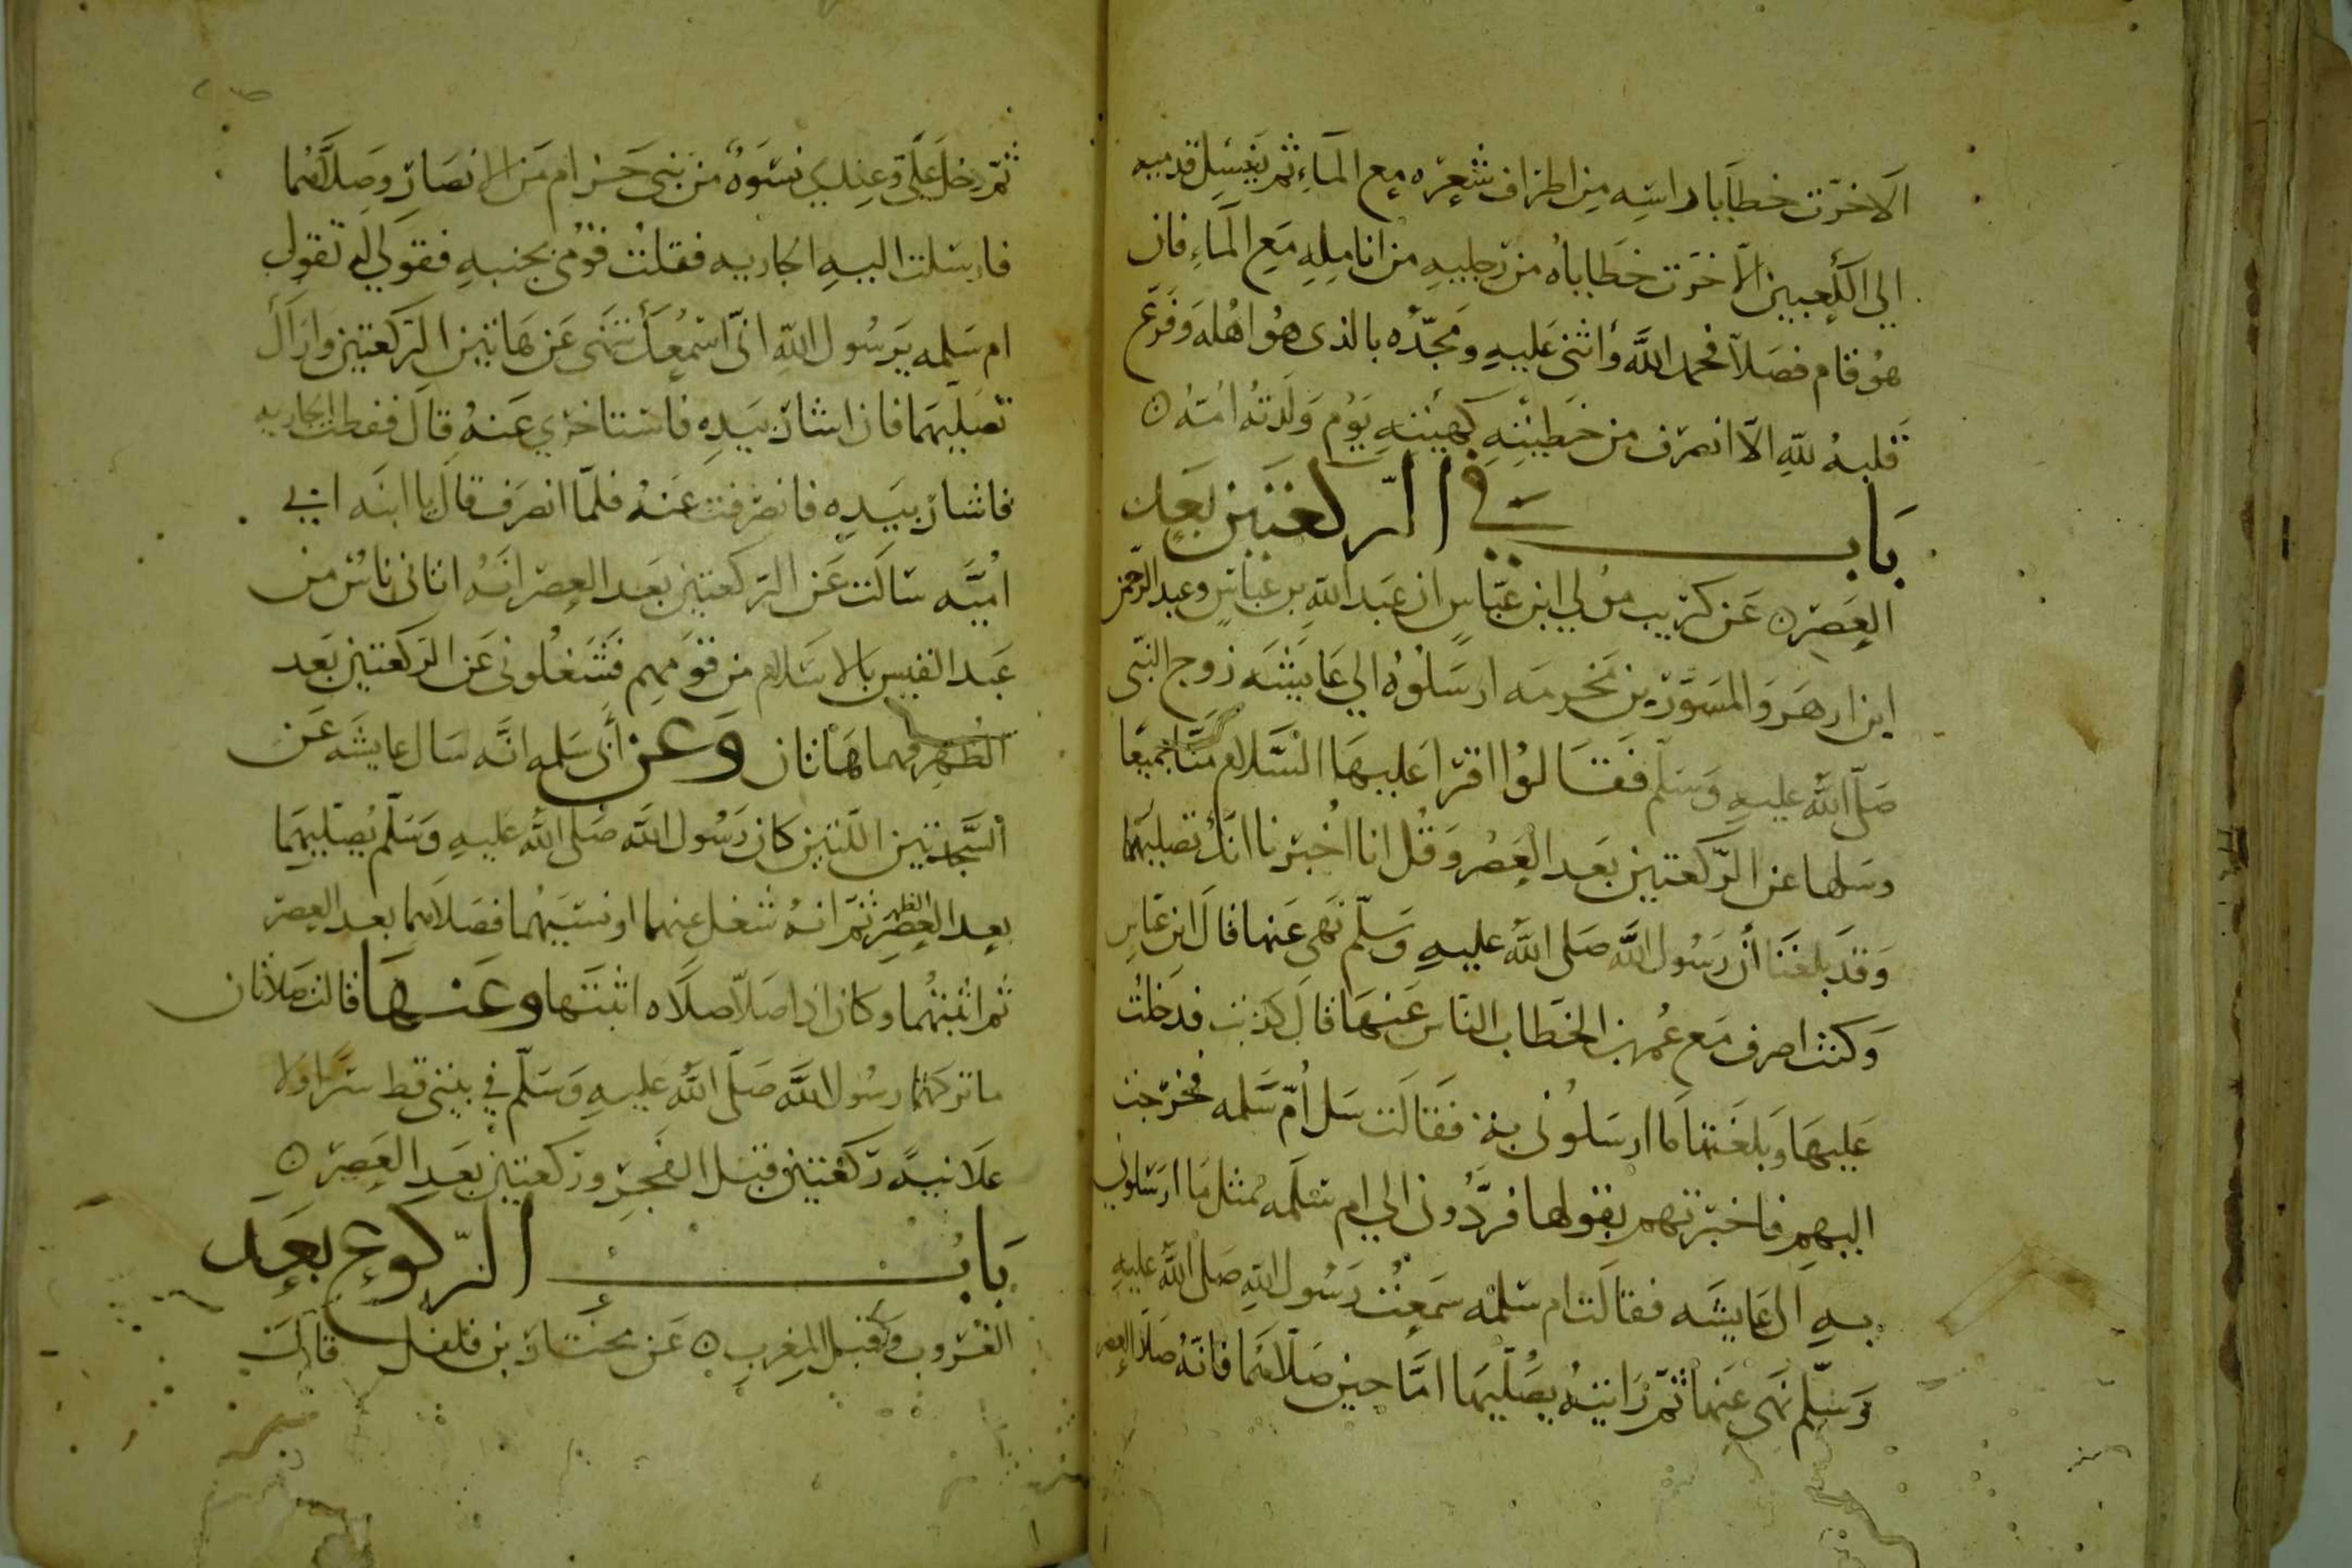 الا خرّت خطايا راسه من اطراف شعره مع الماء ثم يغسل قدميه
الي الكعبين الا خرّت خطاياه من رجليه من انامله مع الماء فان
هو قام فصلا فحمد الله وأثنى عليه ومجّده بالذى هو اهله وفرغ
قلبه لله الّا انصرف من خطيئته كهيئته يوم ولدته امّه
باب في الرّكعتين بعد
العصر عن كريب مولي ابن عبّاس ان عبد الله بن عبّاس وعبد الرّحمن
ابن ازهر والمسوّر بن مخرمه ارسلوه الي عايشه زوج النبّى
صلّى الله عليه وسلّم فقالوا اقرا عليها السّلام منّا جميعا
وسلها عن الرّكعتين بعد العصر وقل انا اخبرنا انّك تصليهما
وقد بلغنا أن رسول الله صلى الله عليه وسلّم نهى عنها قال ابن عباس
وكنت اصرف مع عمر بن الخطاب الناس عنها قال كريب فدخلت
عليها وبلغتها ما ارسلونى به فقالت سل أمّ سلمه فخرجت
اليهم فاخبرتهم بقولها فردّونى الي ام سلمه بمثل ما ارسلوني
به الى عايشه فقالت ام سلمه سمعت رسول الله صلى الله عليه
وسلّم نهى عنها ثمّ رايته يصلّيها امّا حين صلّاهما فانّه صلا العصر
ثمّ دخل علّى وعندى نسوة من بنى حرام من الانصار وصلّاهما
فارسلت اليه الجاريه فقلت قومى بجنبه فقولي له تقول
ام سلمه يرسول الله انّى اسمعك تنهى عن هاتين الرّكعتين واراك
تصليهما فان اشار بيده فاستاخرى عنه قال ففعلت الجاريه
فاشار بيده فانصرفت عنه فلمّا انصرف قال يا ابنه ابي
اميّه سالت عن الرّكعتين بعد العصر انّه اتانى ناس من
عبد القيس بالاسلام من قومهم فشغلونى عن الركعتين بعد
الظهر فهما هاتان وعن أبى سلمه انّه سال عايشه عن
السّجدتين اللتين كان رسول الله صلى الله عليه وسلّم يصلّيهما
بعد العصر الظهر ثمّ انه شغل عنهما او نسيهما فصلاهما بعد العصر
ثم اثبتهما وكان اذا صلّا صلاه اثبتها وعنها قالت صلاتان
ما تركهما رسول الله صلّى الله عليه وسلّم في بيتى قط سرّا ولا
علانيه ركعتين قبل الفجر وركعتين بعد العصر
باب الرّكوع بعد
الغروب وقبل المغرب عن مختار بن فلفل قال